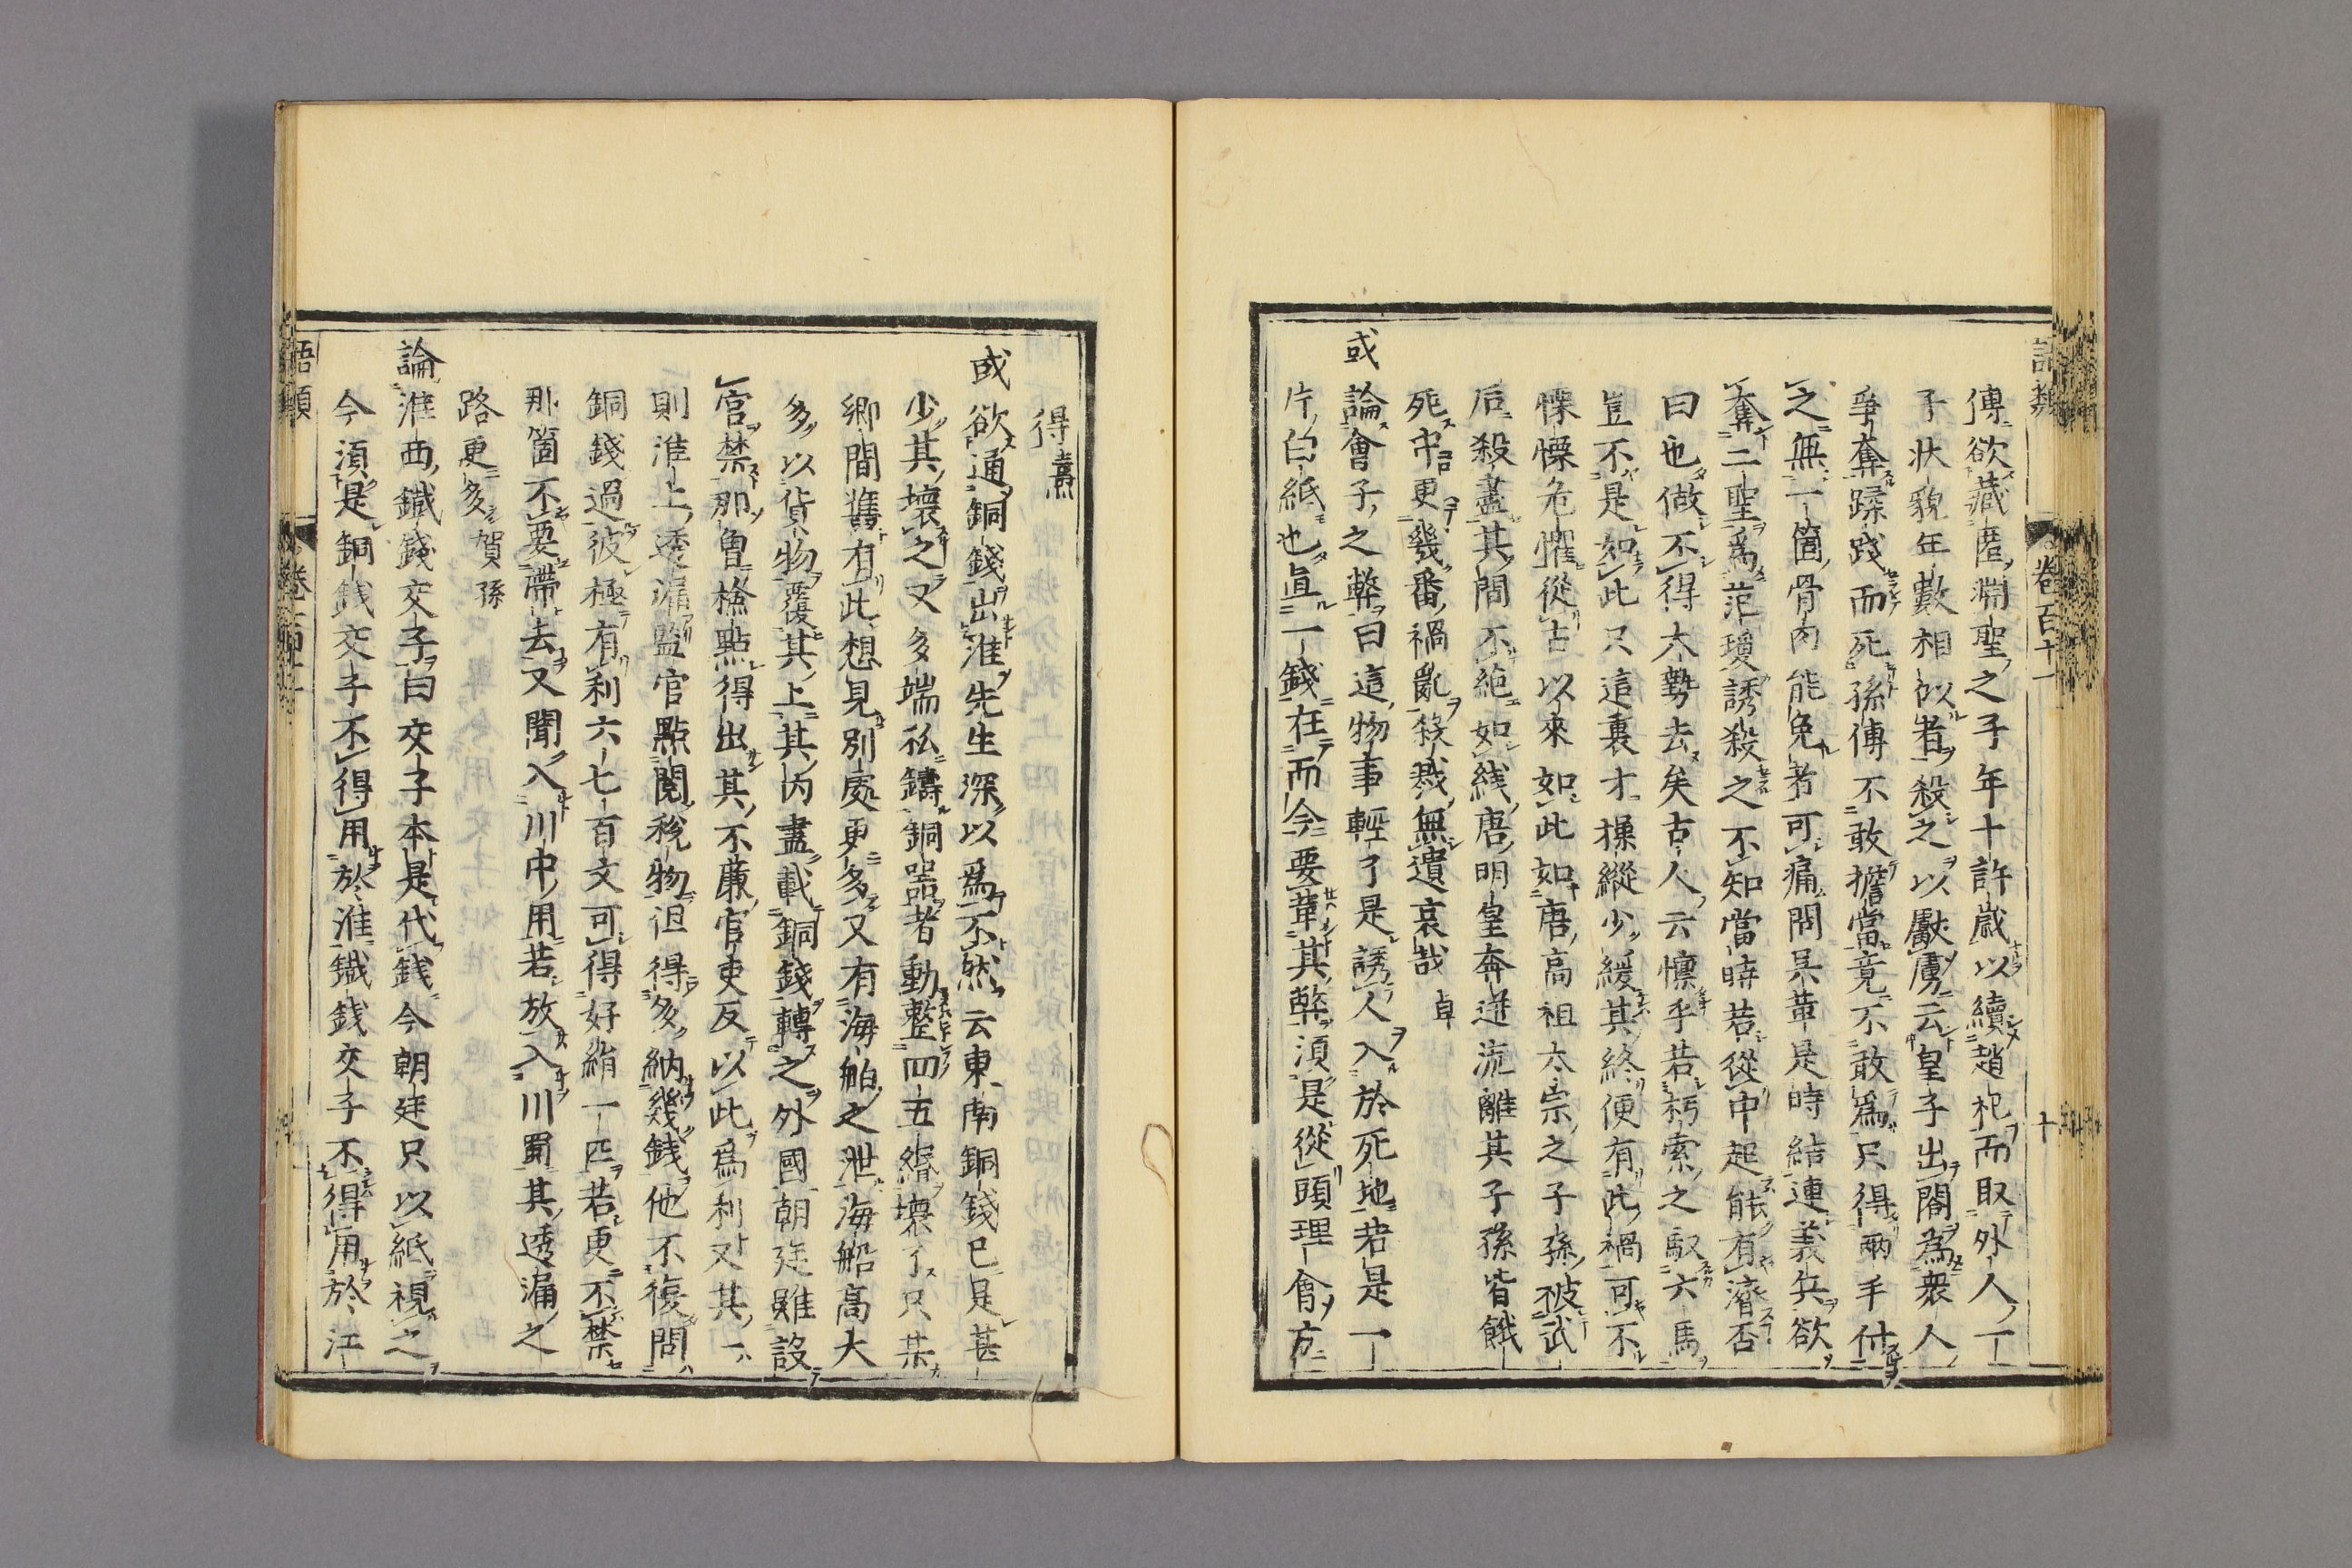 語類
卷百十一
十
傅欲藏匿淵聖之子年十許歲以續趙祀而取外人一
子狀貌年數相似者殺之以獻虜云皇子出閤為衆人
爭奪蹂踐而死孫傅不敢擔當竟不敢為只得兩手付
之無一箇骨肉能免者可痛問吳革是時結連義兵欲
奪二聖為范瓊誘殺之不知當時若從中起能有濟否
曰也做不得大勢去矣古人云懍乎若朽索之馭六馬
豈不是如此只這裏才操縱少緩其終便有此禍可不
慄慄危懼從古以來如此如唐高祖太宗之子孫被武
后殺盡其間不絶如綫唐明皇奔迸流離其子孫皆餓
死中更幾番禍亂殺戮無遺哀哉 卓
或論會子之弊曰這物事輕了是誘人入於死地若是一
片白紙也直一錢在而今要革其弊須是從頭理會方
得 燾
或欲通銅錢出淮先生深以為不然云東南銅錢已是甚
少其壞之又多端私鑄銅器者動整四五緡壞了只某
鄉間舊有此想見別處更多又有海舶之泄海船高大
多以貨物覆其上其内盡載銅錢轉之外國朝廷雖設
官禁那曾檢點得出其不廉官吏反以此為利又其一
則淮上透漏監官點閱稅物但得多納幾錢他不復問
銅錢過彼極有利六七百文可得好絹一匹若更不禁
那箇不要帶去又聞入川中用若放入川蜀其透漏之
路更多 賀孫
論淮西鐵錢交子曰交子本是代錢今朝廷只以紙視之
今須是銅錢交子不得用於淮鐵錢交子不得用於江
語類
卷百十一